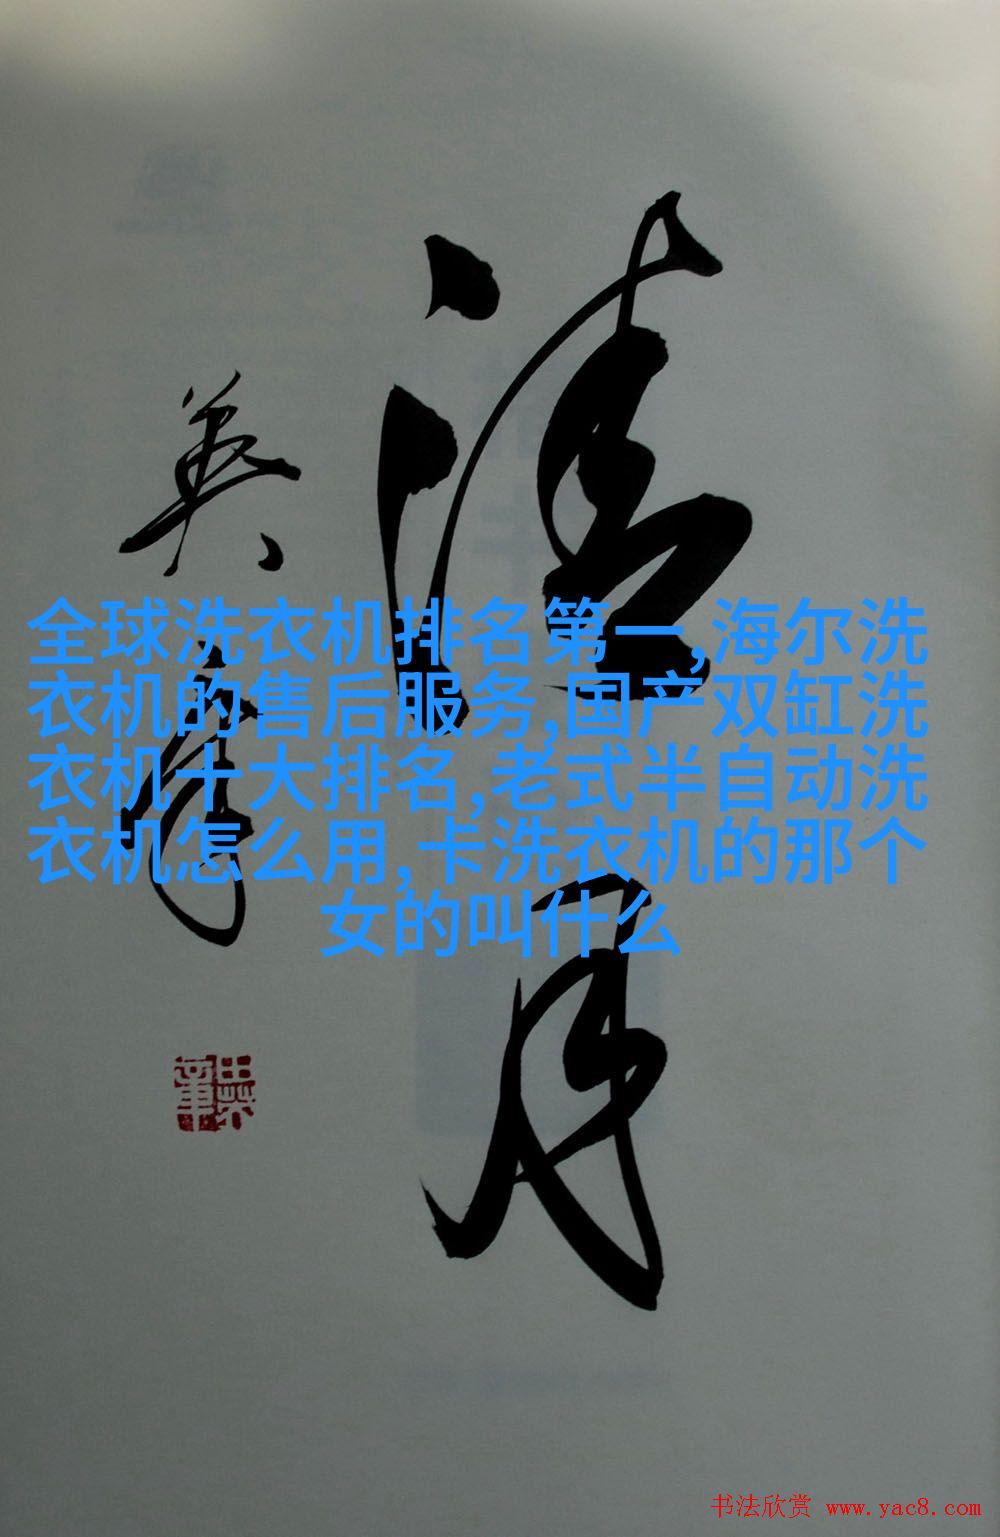 清
月
英章
全球洗衣机排名第一,海尔洗
衣机的售后服务,国产双缸洗
衣机十大排名,老式半自动洗
衣机怎么用,卡洗衣机的那个
女的叫什么
书法欣赏 www.yac8.com